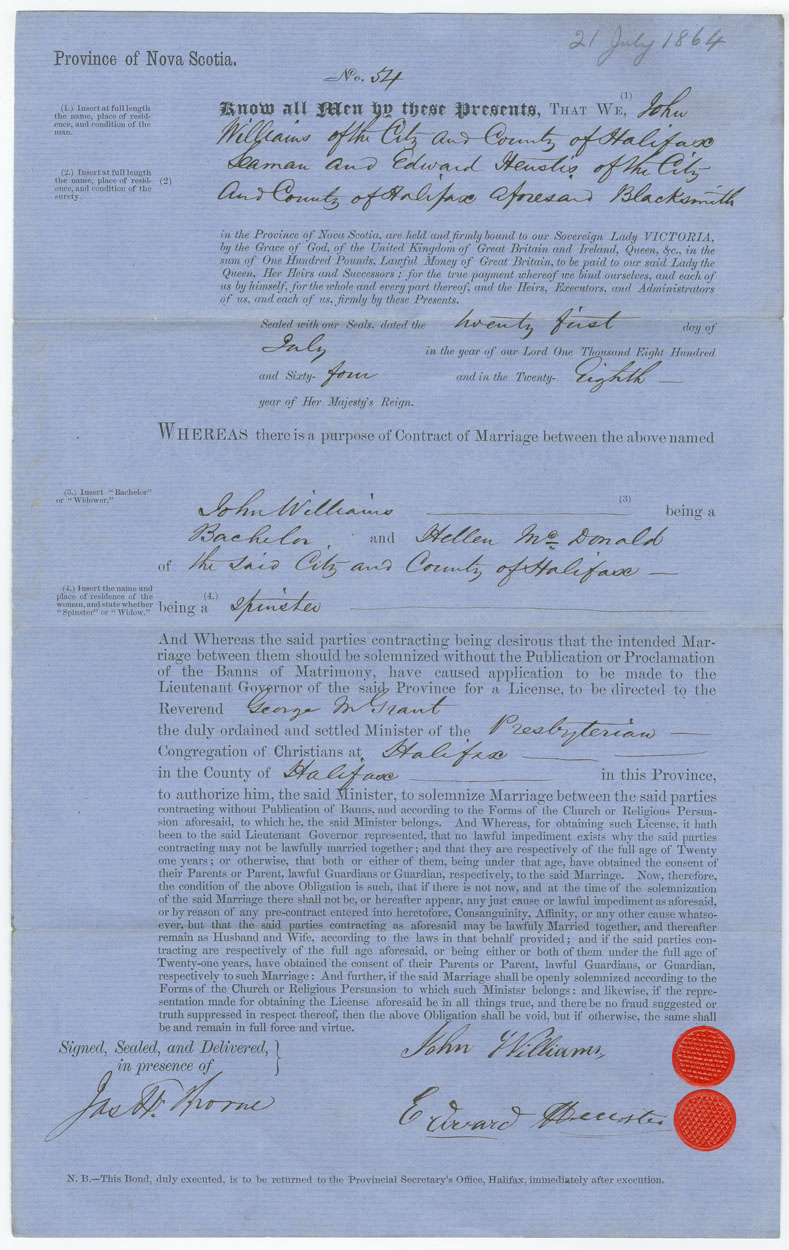 21 July 1864
Province of Nova Scotia.
No. 54
(1.) Insert at full length
the name, place of resid-
ence, and condition of the
man.
Know all Men by these Presents, THAT WE, (1) John
Williams of the City and County of Halifax
(2.) Insert at full length
the name, place of resid-
ence, and condition of the
surety.
(2)
Seaman and Edward Heustis of the City
And County of Halifax aforesaid Blacksmith
in the Province of Nova Scotia, are held and firmly bound to our Sovereign Lady VICTORIA,
by the Grace of God, of the United Kingdom of Great Britain and Ireland, Queen, &c., in the
sum of One Hundred Pounds, Lawful Money of Great Britain, to be paid to our said Lady the
Queen, Her Heirs and Successors; for the true payment whereof we bind ourselves, and each of
us by himself, for the whole and every part thereof, and the Heirs, Executors, and Administrators
of us, and each of us, firmly by these Presents.
Sealed with our Seals, dated the twenty first day of
July in the year of our Lord One Thousand Eight Hundred
and Sixty- four and in the Twenty- Eighth —
year of Her Majesty's Reign.
WHEREAS there is a purpose of Contract of Marriage between the above named
(3.) Insert "Bachelor"
or "Widower."
John Williams (3) being a
Bachelor and Hellen Mc Donald
of the said City and County of Halifax —
(4.) Insert the name and
place of residence of the
woman, and state whether
"Spinster" or "Widow."
being a (4.) Spinster
And Whereas the said parties contracting being desirous that the intended Mar-
riage between them should be solemnized without the Publication or Proclamation
of the Banns of Matrimony, have caused application to be made to the
Lieutenant Governor of the said Province for a License, to be directed to the
Reverend George M Grant
the duly ordained and settled Minister of the Presbyterian —
Congregation of Christians at Halifax
in the County of Halifax in this Province,
to authorize him, the said Minister, to solemnize Marriage between the said parties
contracting without Publication of Banns, and according to the Forms of the Church or Religious Persua-
sion aforesaid, to which he, the said Minister belongs. And Whereas, for obtaining such License, it hath
been to the said Lieutenant Governor represented, that no lawful impediment exists why the said parties
contracting may not be lawfully married together; and that they are respectively of the full age of Twenty
one years; or otherwise, that both or either of them, being under that age, have obtained the consent of
their Parents or Parent, lawful Guardians or Guardian, respectively, to the said Marriage. Now, therefore,
the condition of the above Obligation is such, that if there is not now, and at the time of the solemnization
of the said Marriage there shall not be, or hereafter appear, any just cause or lawful impediment as aforesaid,
or by reason of any pre-contract entered into heretofore, Consanguinity, Affinity, or any other cause whatso-
ever, but that the said parties contracting as aforesaid may be lawfuly Married together, and thereafter
remain as Husband and Wife, according to the laws in that behalf provided; and if the said parties con-
tracting are respectively of the full age aforesaid, or being either or both of them under the full age of
Twenty-one years, have obtained the consent of their Parents or Parent, lawful Guardians, or Guardian,
respectively to such Marriage: And further, if the said Marriage shall be openly solemnized according to the
Forms of the Church or Religious Persuasion to which such Ministsr belongs: and likewise, if the repre-
sentation made for obtaining the License aforesaid be in all things true, and there be no fraud suggested or
truth suppressed in respect thereof, then the above Obligation shall be void, but if otherwise, the same shall
be and remain in full force and virtue.
Signed, Sealed, and Delivered,
in presence of
John Williams
Jas H. Thorne
Edward Heustis
N. B.—This Bond, duly executed, is to be returned to the Provincial Secretary's Office, Halifax, immediately after execution.